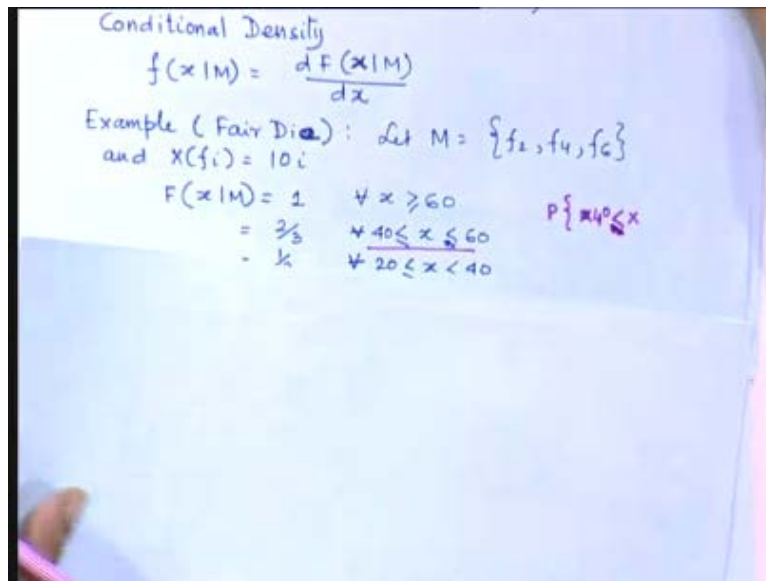 Conditional Density
f(x|M) = dF(x|M)/dx
Example (Fair Die): Let M = {f2, f4, f6}
and X(fi) = 10i
F(x|M) = 1 ∀ x ≥ 60
= 2/3 ∀ 40 ≤ x ≤ 60
= ∀ 20 ≤ x < 40
P{ 40 ≤ x